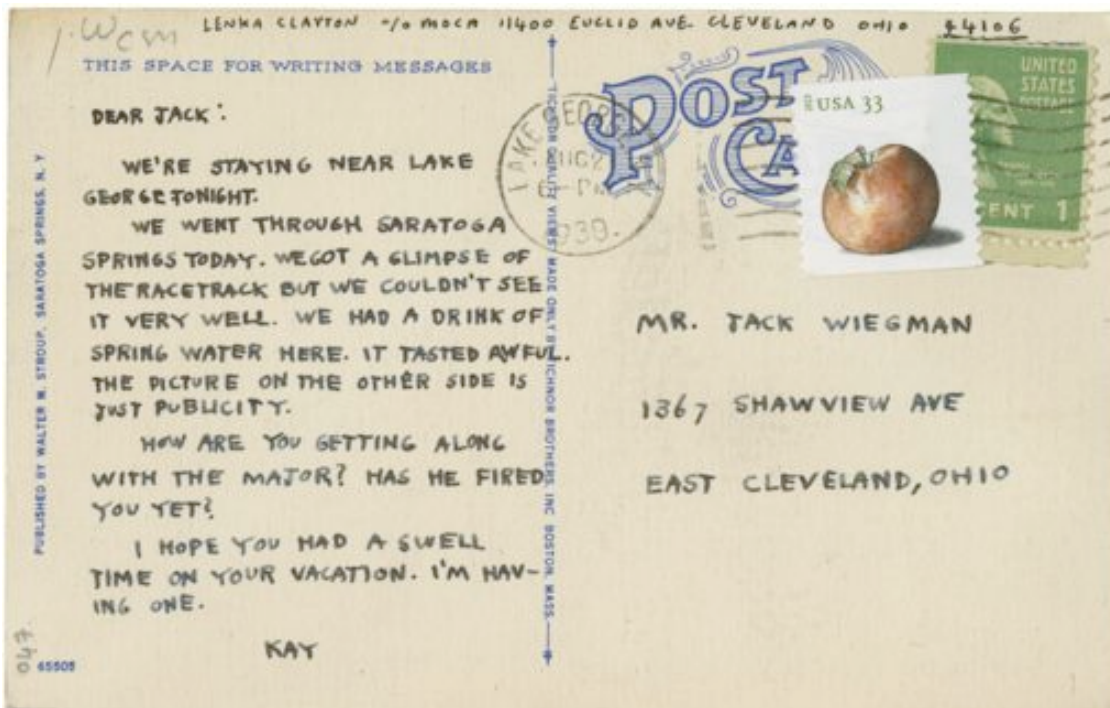 LENKA CLAYTON c/o MOCA 11400 EUCLID AVE. CLEVELAND OHIO 44106
THIS SPACE FOR WRITING MESSAGES
DEAR JACK:
WE'RE STAYING NEAR LAKE
GEORGE TONIGHT.
WE WENT THROUGH SARATOGA
SPRINGS TODAY. WE GOT A GLIMPSE OF
THE RACETRACK BUT WE COULDN'T SEE
IT VERY WELL. WE HAD A DRINK OF
SPRING WATER HERE. IT TASTED AWFUL.
THE PICTURE ON THE OTHER SIDE IS
JUST PUBLICITY.
HOW ARE YOU GETTING ALONG
WITH THE MAJOR? HAS HE FIRED
YOU YET?
I HOPE YOU HAD A SWELL
TIME ON YOUR VACATION. I'M HAV-
ING ONE.
KAY
047
65505
PUBLISHED BY WALTER M. STROUP, SARATOGA SPRINGS, N. Y.
TICHNOR QUALITY VIEWS MADE ONLY BY TICHNOR BROTHERS, INC. BOSTON, MASS.
POST
CA
LAKE GEORGE
1939.
USA 33
UNITED
STATES
POSTAGE
CENT 1
MR. JACK WIEGMAN
1367 SHAWVIEW AVE
EAST CLEVELAND, OHIO